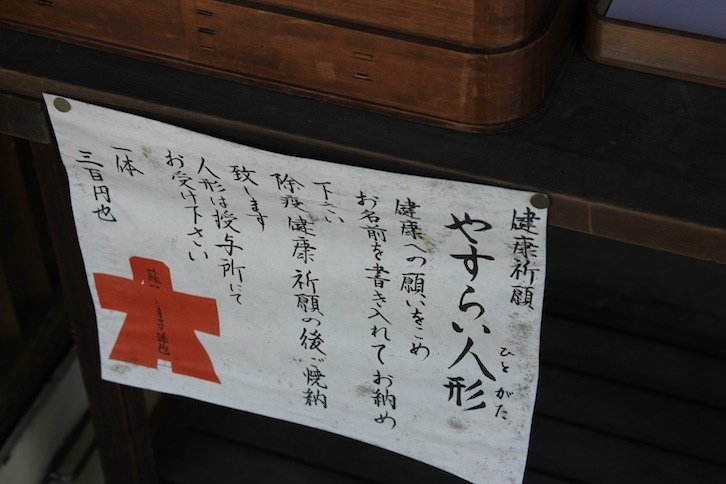 健康祈願
やすらい人形
ひとがた
健康への願いをこめ
お名前を書き入れてお納め
下さい
除疫健康祈願の後ご焼納
致します
人形は授与所にて
お受け下さい
一体
三百円也